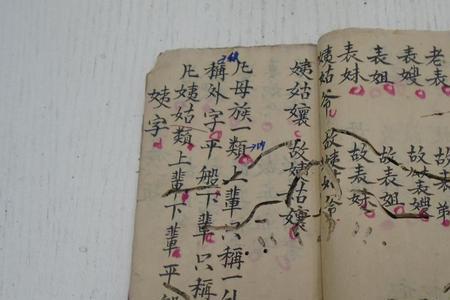 老表 故表弟
表嫂 故表嫂
表姐 故表姐
表妹 故表妹
姨姑爷 故姨姑爷
姨姑孃 故姨姑孃
凡母族一類上輩只稱一外
稱外字平般下輩只稱
凡姨姑類上輩下輩平般
姨字